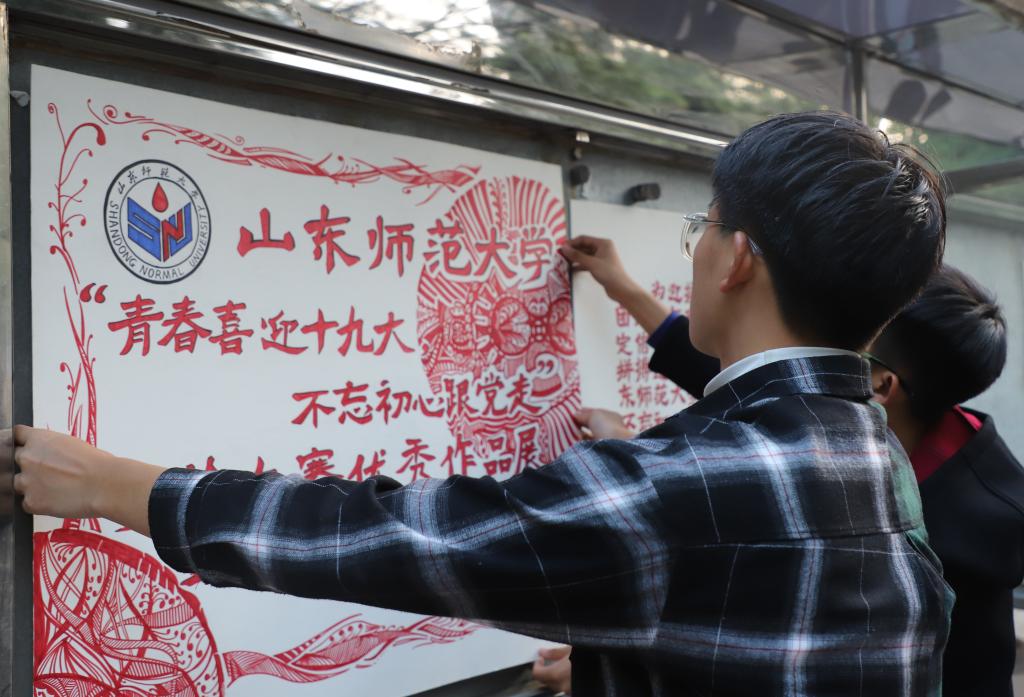 山东师范大学
SHANDONG NORMAL UNIVERSITY
SN
山东师范大学
“青春喜迎十九大
不忘初心跟党走”
大赛优秀作品展
为迎
团
定
拼搏
东师范大
不忘初